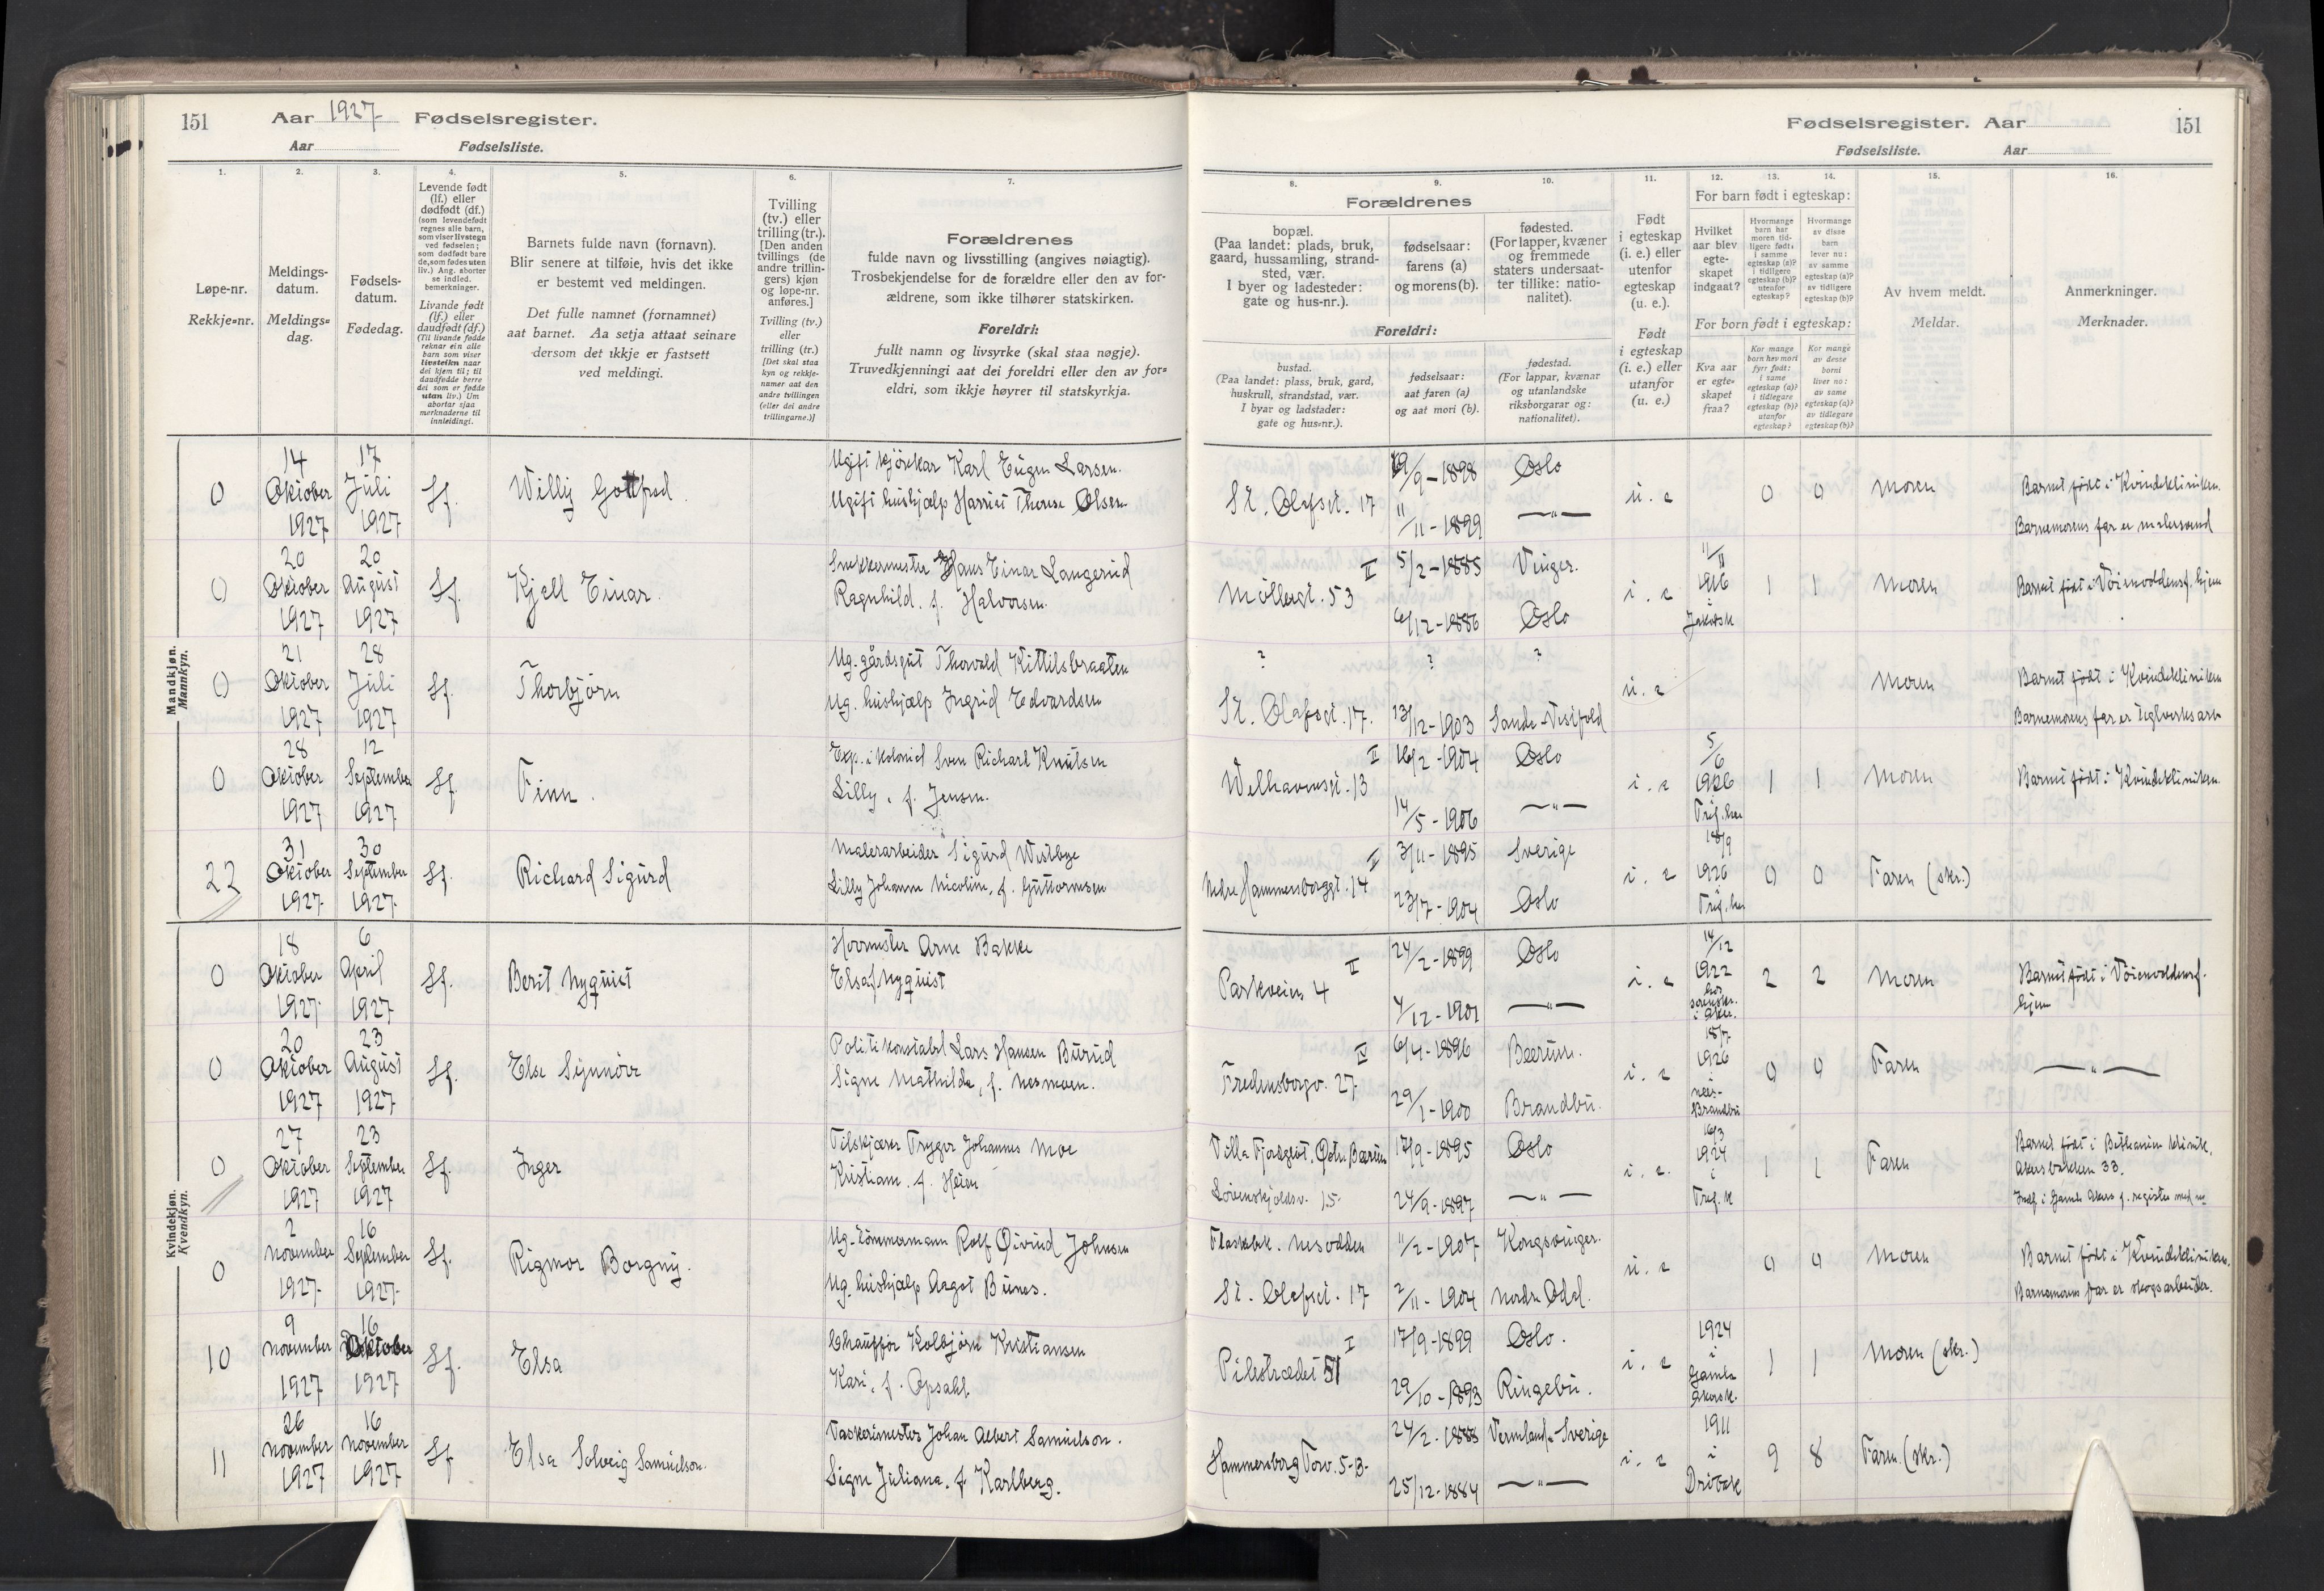 151
Aar 1927 Fødselsregister.
Aar Fødselsliste.
Fødselsregister. Aar
151
Fødselsliste. Aar
1.
Løpe-nr.
Rekkje=nr.
2.
Meldings-
datum.
Meldings=
dag.
3.
Fødsels-
datum.
Fødedag.
4.
Levende født
(lf.) eller
dødfødt (df.)
(som levendefødt
regnes alle barn,
som viser livstegn
ved fødselen;
som dødfødt bare
de, som fødes uten
liv.) Ang. aborter
se indled.
bemerkninger.
Livande født
(lf.) eller
daudfødt (df.)
(Til livande fødde
reknar ein alle
barn som viser
livsteikn naar
dei kjem til; til
daudfødde berre
dei som er fødde
utan liv.) Um
abortar sjaa
merknaderne til
innleidingi.
5.
Barnets fulde navn (fornavn).
Blir senere at tilføie, hvis det ikke
er bestemt ved meldingen.
Det fulle namnet (fornamnet)
aat barnet. Aa setja attaat seinare
dersom det ikkje er fastsett
ved meldingi.
6.
Tvilling
(tv.) eller
trilling (tr.).
[Den anden
tvillings (de
andre trillin-
gers) kjøn
og løpe-nr.
anføres.]
Tvilling (tv.)
eller
trilling (tr.)
[Det skal staa
kyn og rekkje-
numer aat den
andre tvillingen
(eller dei andre
trillingarne.)]
7.
Forældrenes
fulde navn og livsstilling (angives nøiagtig).
Trosbekjendelse for de forældre eller den av for-
ældrene, som ikke tilhører statskirken.
Foreldri:
fullt namn og livsyrke (skal staa nøgje).
Truvedkjenningi aat dei foreldri eller den av for=
eldri, som ikkje høyrer til statskyrkja.
8.
Forældrenes
bopæl.
(Paa landet: plads, bruk,
gaard, hussamling, strand-
sted, vær.
I byer og ladesteder:
gate og hus-nr.).
Foreldri:
bustad.
(Paa landet: plass, bruk, gard,
huskrull, strandstad, vær.
I byar og ladstader:
gate og hus=nr.).
9.
fødselsaar:
farens (a)
og morens (b).
fødselsaar:
aat faren (a)
og aat mori (b).
10.
fødested.
(For lapper, kvæner
og fremmede
staters undersaat-
ter tillike: natio-
nalitet).
fødestad.
(For lappar, kvænar
og utanlandske
riksborgarar og:
nationalitet).
11.
Født
i egteskap
(i. e.) eller
utenfor
egteskap
(u. e.).
Født
i egteskap
(i. e.) eller
utanfor
(u. e.)
12.
13.
14.
For barn født i egteskap:
Hvilket
aar blev
egte-
skapet
indgaat?
Hvormange
barn har
moren tid-
ligere født:
i samme
egteskap (a)?
i tidligere
egteskap (b)?
utenfor
egteskap?
Hvormange
av disse
barn
lever nu:
av samme
egteskap (a)?
av tidligere
egteskap (b)?
For born født i egteskap:
Kva aar
er egte-
skapet
fraa?
Kor mange
born hev mori
fyrr født:
i same
egteskap (a)?
i tidlegare
egteskap (b)?
utanfor
egteskap?
Kor mange
av desse
borni
liver no:
av same
egteskap (a)?
av tidlegare
egteskap (b)?
15.
Av hvem meldt.
Meldar.
16.
Anmerkninger.
Merknader.
Mandkjøn.
Mannkyn.
0 14 Oktober 1927 17 Juli 1927 Lf. Willy Gottfred
Ugift kjørekar Karl Eugen Larsen.
Ugift hushjælp Harriet Therese Olsen
St. Olafsgt. 17 /9-1898 Oslo
11/11-1899 —"—
u. e 0 0 Moren Barnet født i Kvindeklinikken.
Barnemorens far er malersvend
0 20 Oktober 1927 20 August 1927 Lf. Kjell Einar.
Snekkermester Hans Einar Langerud
Ragnhild, f. Halvorsen.
Møllergt. 53 II 5/2-1885 Vinger.
6/12-1886 Oslo
i. e 11/11 1916 i Jakobsk 1 1 Moren Barnet født i Vøienvoldensf. hjem
0 21 Oktober 1927 28 Juli 1927 Lf. Thorbjørn
Ug. gårdsgut Thorvald Kittilsbraaten
Ug. hushjælp Ingrid Edvardsen
? ? ?
St. Olafsgt. 17. 13/12-1903 Sande-Vestfold
u. e Moren Barnet født i Kvindeklinikken
Barnemorens far er teglverksarb
0 28 Oktober 1927 12 September 1927 Lf. Finn.
Exp. i kolonial Sven Richard Knutsen
Lilly, f. Jensen.
Welhavensgt. 13 II 16/2-1904 Oslo
14/5-1906 —"—
i. e 5/6 1926 Tref. her 1 1 Moren Barnet født i Kvindeklinikken
22 31 Oktober 1927 30 September 1927 Lf. Richard Sigurd
Malerarbeider Sigurd Westbye
Lilly Johanne Nicoline, f. Guttormsen
Nedre Hammersborggt. 14 II 3/11-1895 Sverige
23/7-1904 Oslo
i. e 18/9 1926 Tref. her 0 0 Faren (skr.)
Kvindekjøn.
Kvendkyn.
0 18 Oktober 1927 6 April 1927 Lf. Berit Nyquist
Hovmester Arne Bakke
Elsa f. Nyquist
Parkveien 4 II 24/2-1899 Oslo
4/12-1901 —"—
i. e 14/12 1922 hos sorenskr. i Aker. 2 2 Moren Barnet født i Vøienvoldensf.
hjem
0 20 Oktober 1927 23 August 1927 Lf. Else Synnøve
Politikonstabel Lars Hansen Burud
Signe Mathilde, f. Nesmoen.
Fredensborgv. 27 IV 6/4-1896 Bærum.
29/1-1900 Brandbu.
i. e 18/7 1926 i Næs-Brandbu 0 0 Faren —"—
0 27 Oktober 1927 23 September 1927 Lf. Inger
Filskjærer Trygve Johannes Moe
Kristiane, f. Heien
Villa Fjordgløt, Østre Bærum 17/9-1895 Oslo
Løvenskjoldsv. 15. 24/9-1897 —"—
i. e. 16/3 1924 i Tref. k 1 1 Faren Barnet født i Bethanien klinik,
Akersbakken 33.
Indf. i Gamle Akers f. register med nr
0 2 November 1927 16 September 1927 Lf. Rigmor Borgny.
Ug. tømmermann Rolf Øivind Johnsen
Ug. hushjælp Aagot Bunes.
Flaskebk. Nesodden 11/2-1907 Kongsvinger.
St. Olafsgt. 17 2/11-1904 Nordre Odal.
u. e 0 0 Moren Barnet født i Kvindeklinikken.
Barnemorens far er skogsarbeider.
10 9 November 1927 16 Oktober 1927 Lf. Elsa
Chauffør Kolbjørn Kristiansen
Kari, f. Opsahl.
Pilestrædet 51 I 17/9-1899 Oslo.
29/10-1893 Ringebu.
i. e 1924 i Gamle Akersk. 1 1 Moren (skr.)
11 26 November 1927 16 November 1927 Lf Elsa Solveig Samuelson.
Vaskerimester Johan Albert Samuelson.
Signe Juliana, f. Karlberg.
Hammersborg Torv. 5-B. 24/2-1888 Vermland-Sverige
25/12-1884 —"—
i. e 1911 i Drøbak 9 8 Faren (skr.)